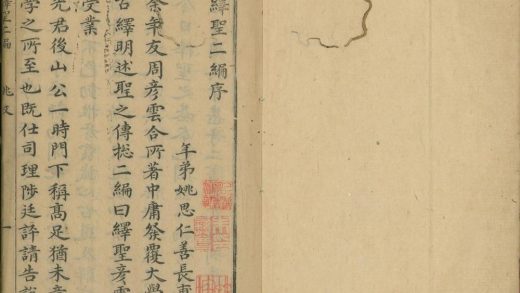 繹聖二編序
年弟姚思仁善長
余年友周彥雲合所著中庸發覆大學
古繹明述聖之傳揔二編曰繹聖彥雲
受業
先君後山公一時門下稱高足猶未
學之所至也既仕司理陟廷評請告
聖二編
一